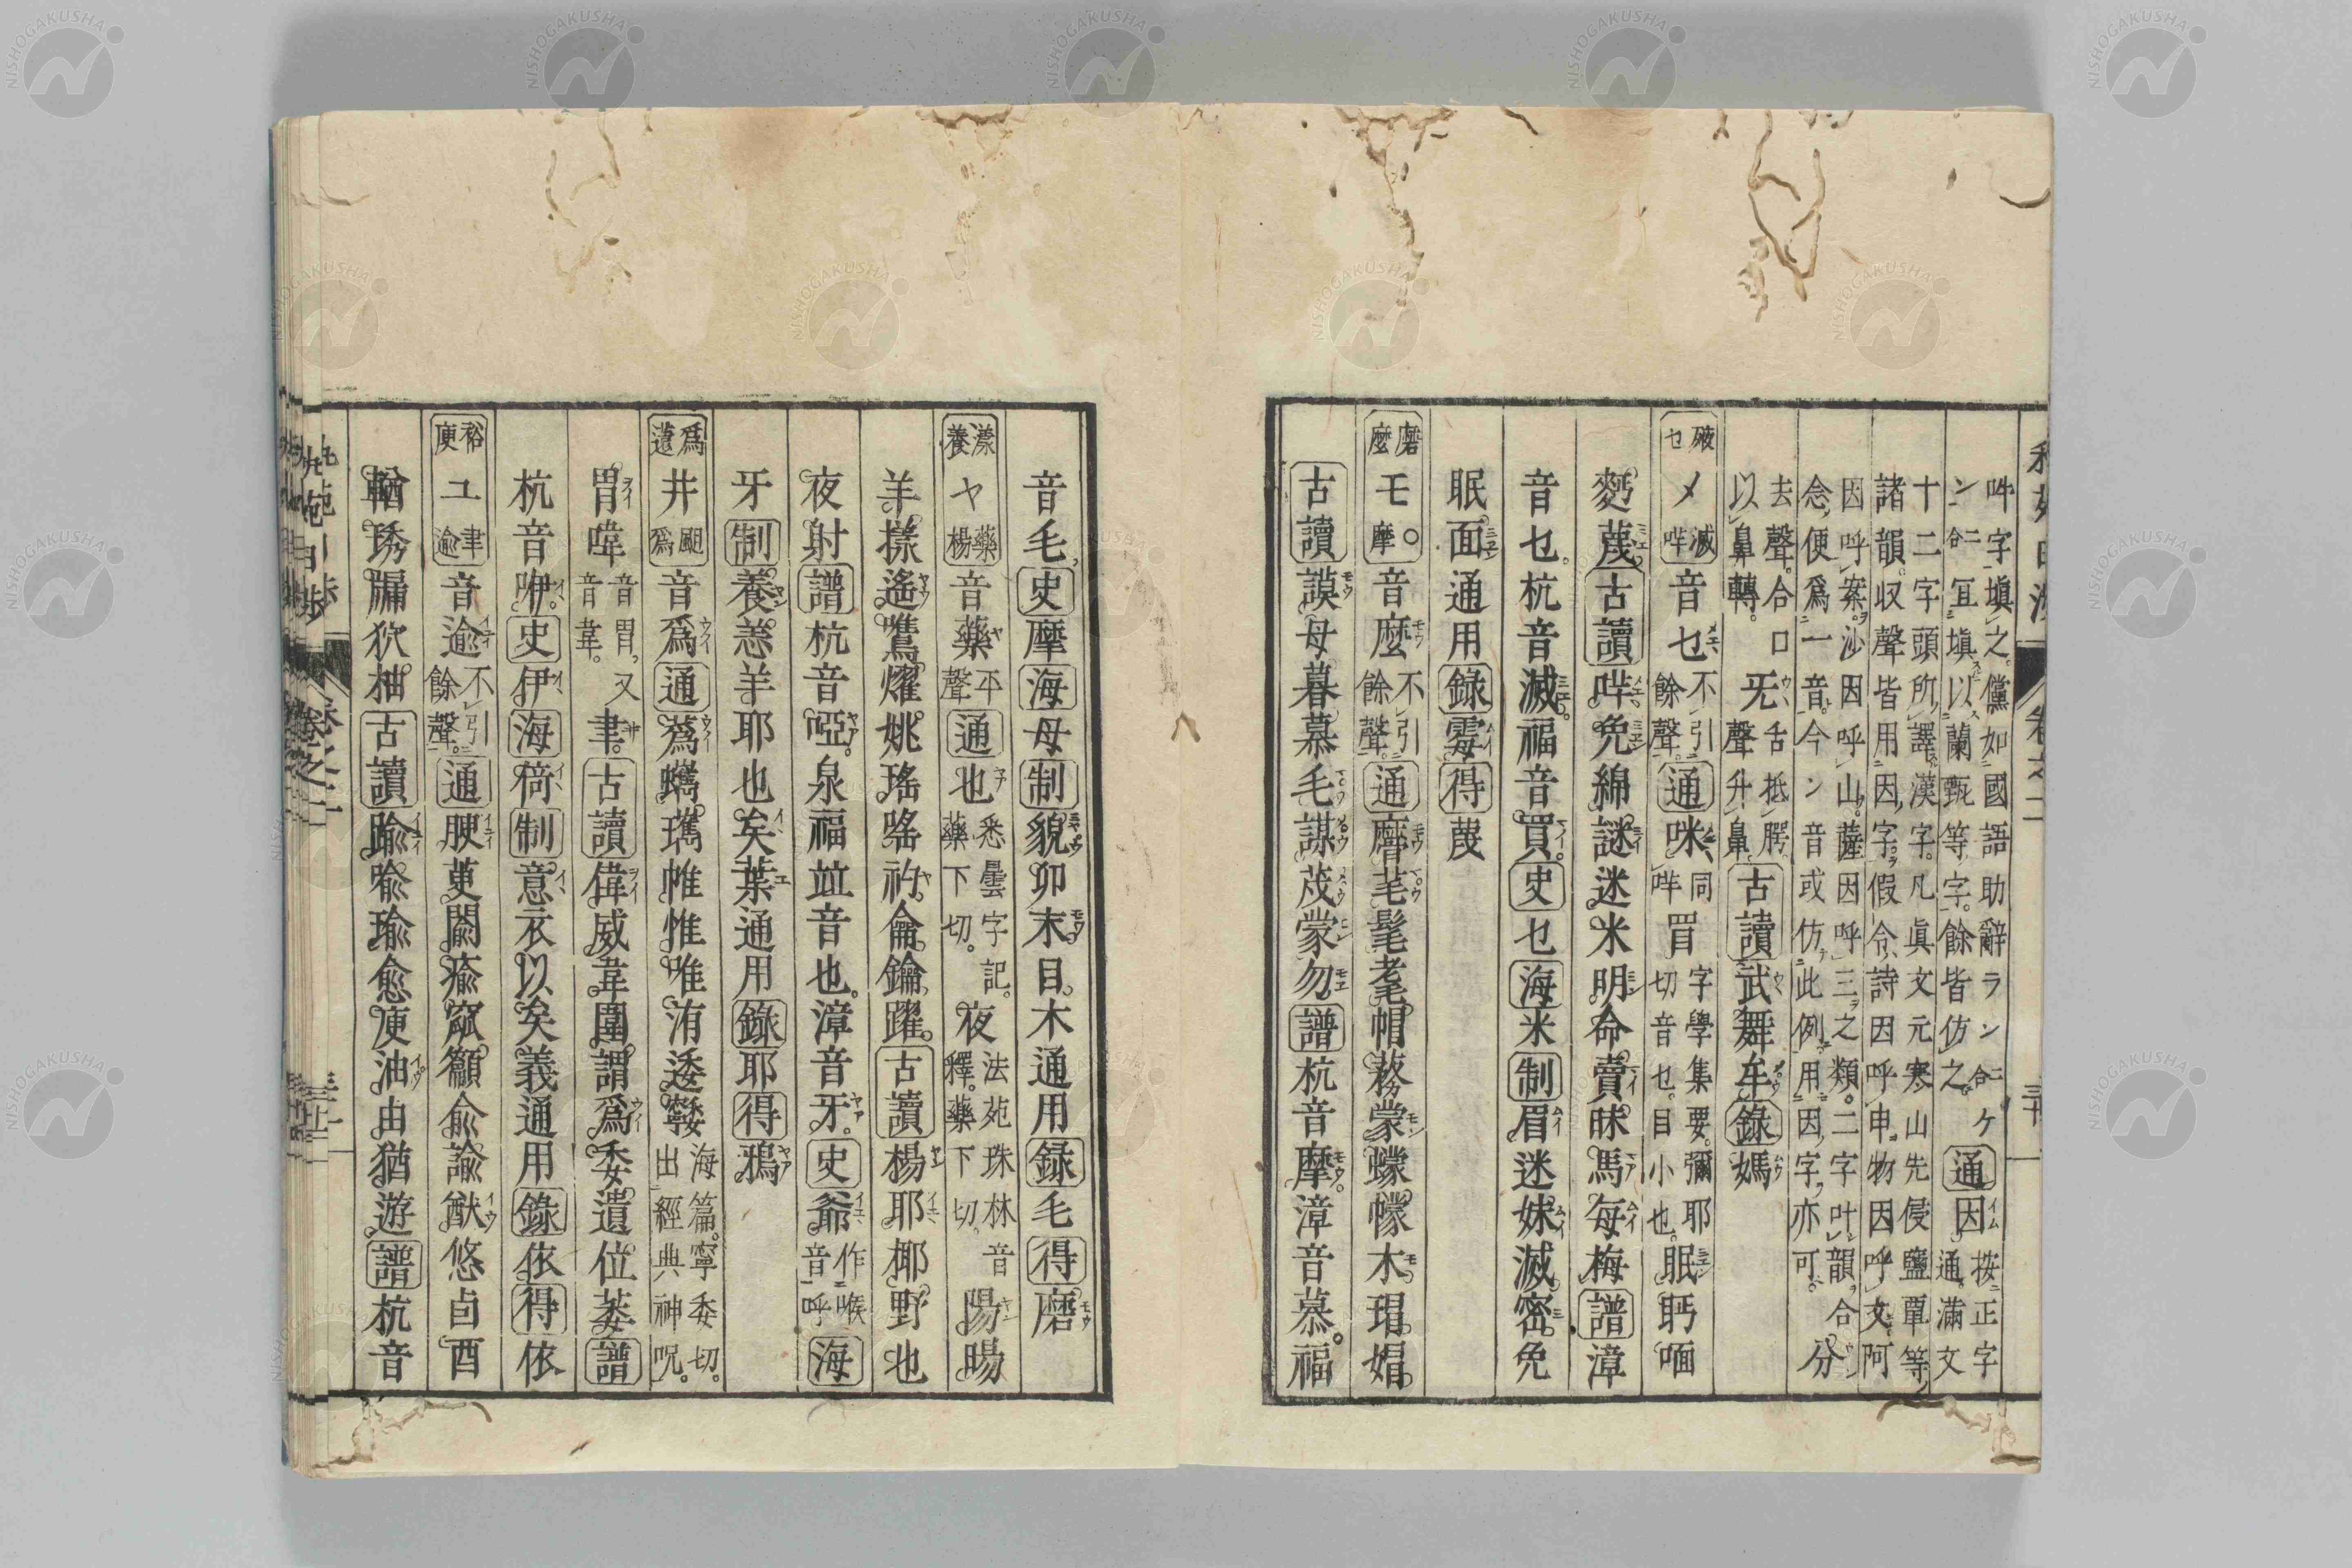 吽字塡之。儻如國語助辭ラン二合ケ
ン二合宜塡以蘭甄等字。餘皆仿之。
通因 按正字通滿文
十二字頭所譯漢字。凡眞文元寒山先侵鹽覃等
諸韻。収聲皆用因字。假令詩因呼申。物因呼文。阿
因呼案。沙因呼山。薩因呼三之類。二字叶韻。合
念便爲一音。今ン音或仿此例用因字亦可。
分去聲。合口
以鼻轉。
旡 舌抵腭
聲升鼻。
古讀武舞牟錄媽
乜 メ 滅哶 音乜 不引餘聲。通咪 同哶 㒻 字學集要。彌耶切音乜。目小也。眠眄㖧
麪蔑古讀哶免綿謎迷米明命賣昧馬每梅譜漳
音乜。杭音滅。福音買。史乜海米制眉迷妹滅密免
眠面通用錄霧得蔑
磨麼 モ 摩 音麼 不引餘聲。通磨芼髦耄帽務蒙蠓幪木瑁媢
古讀謨母暮慕毛謀茂蒙勿譜杭音摩漳音慕。福
音毛史摩海母制貌卯末目木通用錄毛得磨
漾養 ヤ 藥楊 音藥 平聲 通也 悉曇字記。藥下切。夜 法苑珠林音釋。藥下切 陽暘
羊樣遙鷕燿姚瑤㗛礿侖鑰躍古讀楊耶椰野也
夜射譜杭音啞。泉福竝音也。漳音牙。史爺 作喉音呼 海
牙制養恙羊耶也矣葉通用錄耶得鴉
爲遺 井 颲爲 音爲通蔿蟡瓗帷惟唯洧逶㝧 海篇。寧委切。出經典神呪。
胃喡 音胃又音葦。聿古讀偉威韋圍謂爲委遺位萎譜
杭音咿。史伊海椅制意衣以矣義通用錄依得依
裕庾 ユ 聿逾 音逾 不引餘聲。通腴萸閼瘉窳籲俞諭猷悠卣酉
輶琇牖狖柚古讀踰喩瑜愈庾油由猶游譜杭音